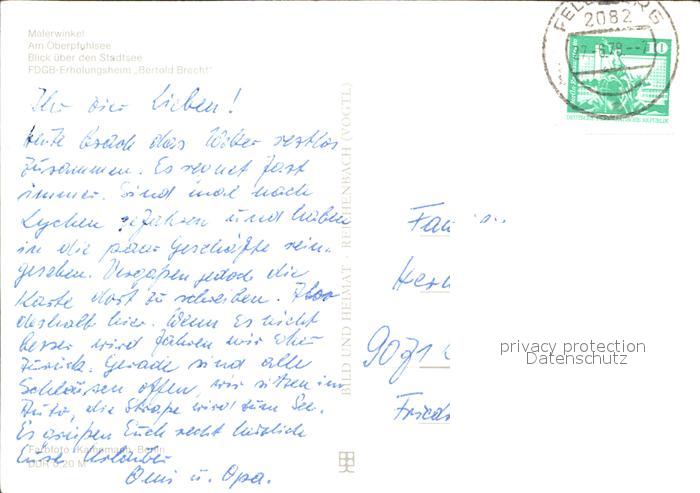 Malerwinkel
Am Oberpfuhlsee
Blick über den Stadtsee
FDGB-Erholungsheim „Bertold Brecht"
Ihr vier Lieben!
Heute brach das Wetter restlos
zusammen. Es regnet fast
immer. Sind mal nach
Lychen gefahren und haben
in die paar Geschäfte rein-
gesehen. Vergaßen jedoch die
Karte dort zu schreiben. Also
deshalb hier. Wenn es nicht
besser wird fahren wir eher
zurück. Gerade sind alle
Schleusen offen, wir sitzen im
Auto, die Straße wird zum See.
Es grüßen Euch recht herzlich
Eure Urlauber
Omi u. Opa.
Farbfoto: Kampmann, Berlin
DDR 0,20 M
BILD UND HEIMAT · REICHENBACH (VOGTL)
2082
10
DEUTSCHE DEMOKRATISCHE REPUBLIK
Fam
Herm
9071
Friedr
privacy protection
Datenschutz